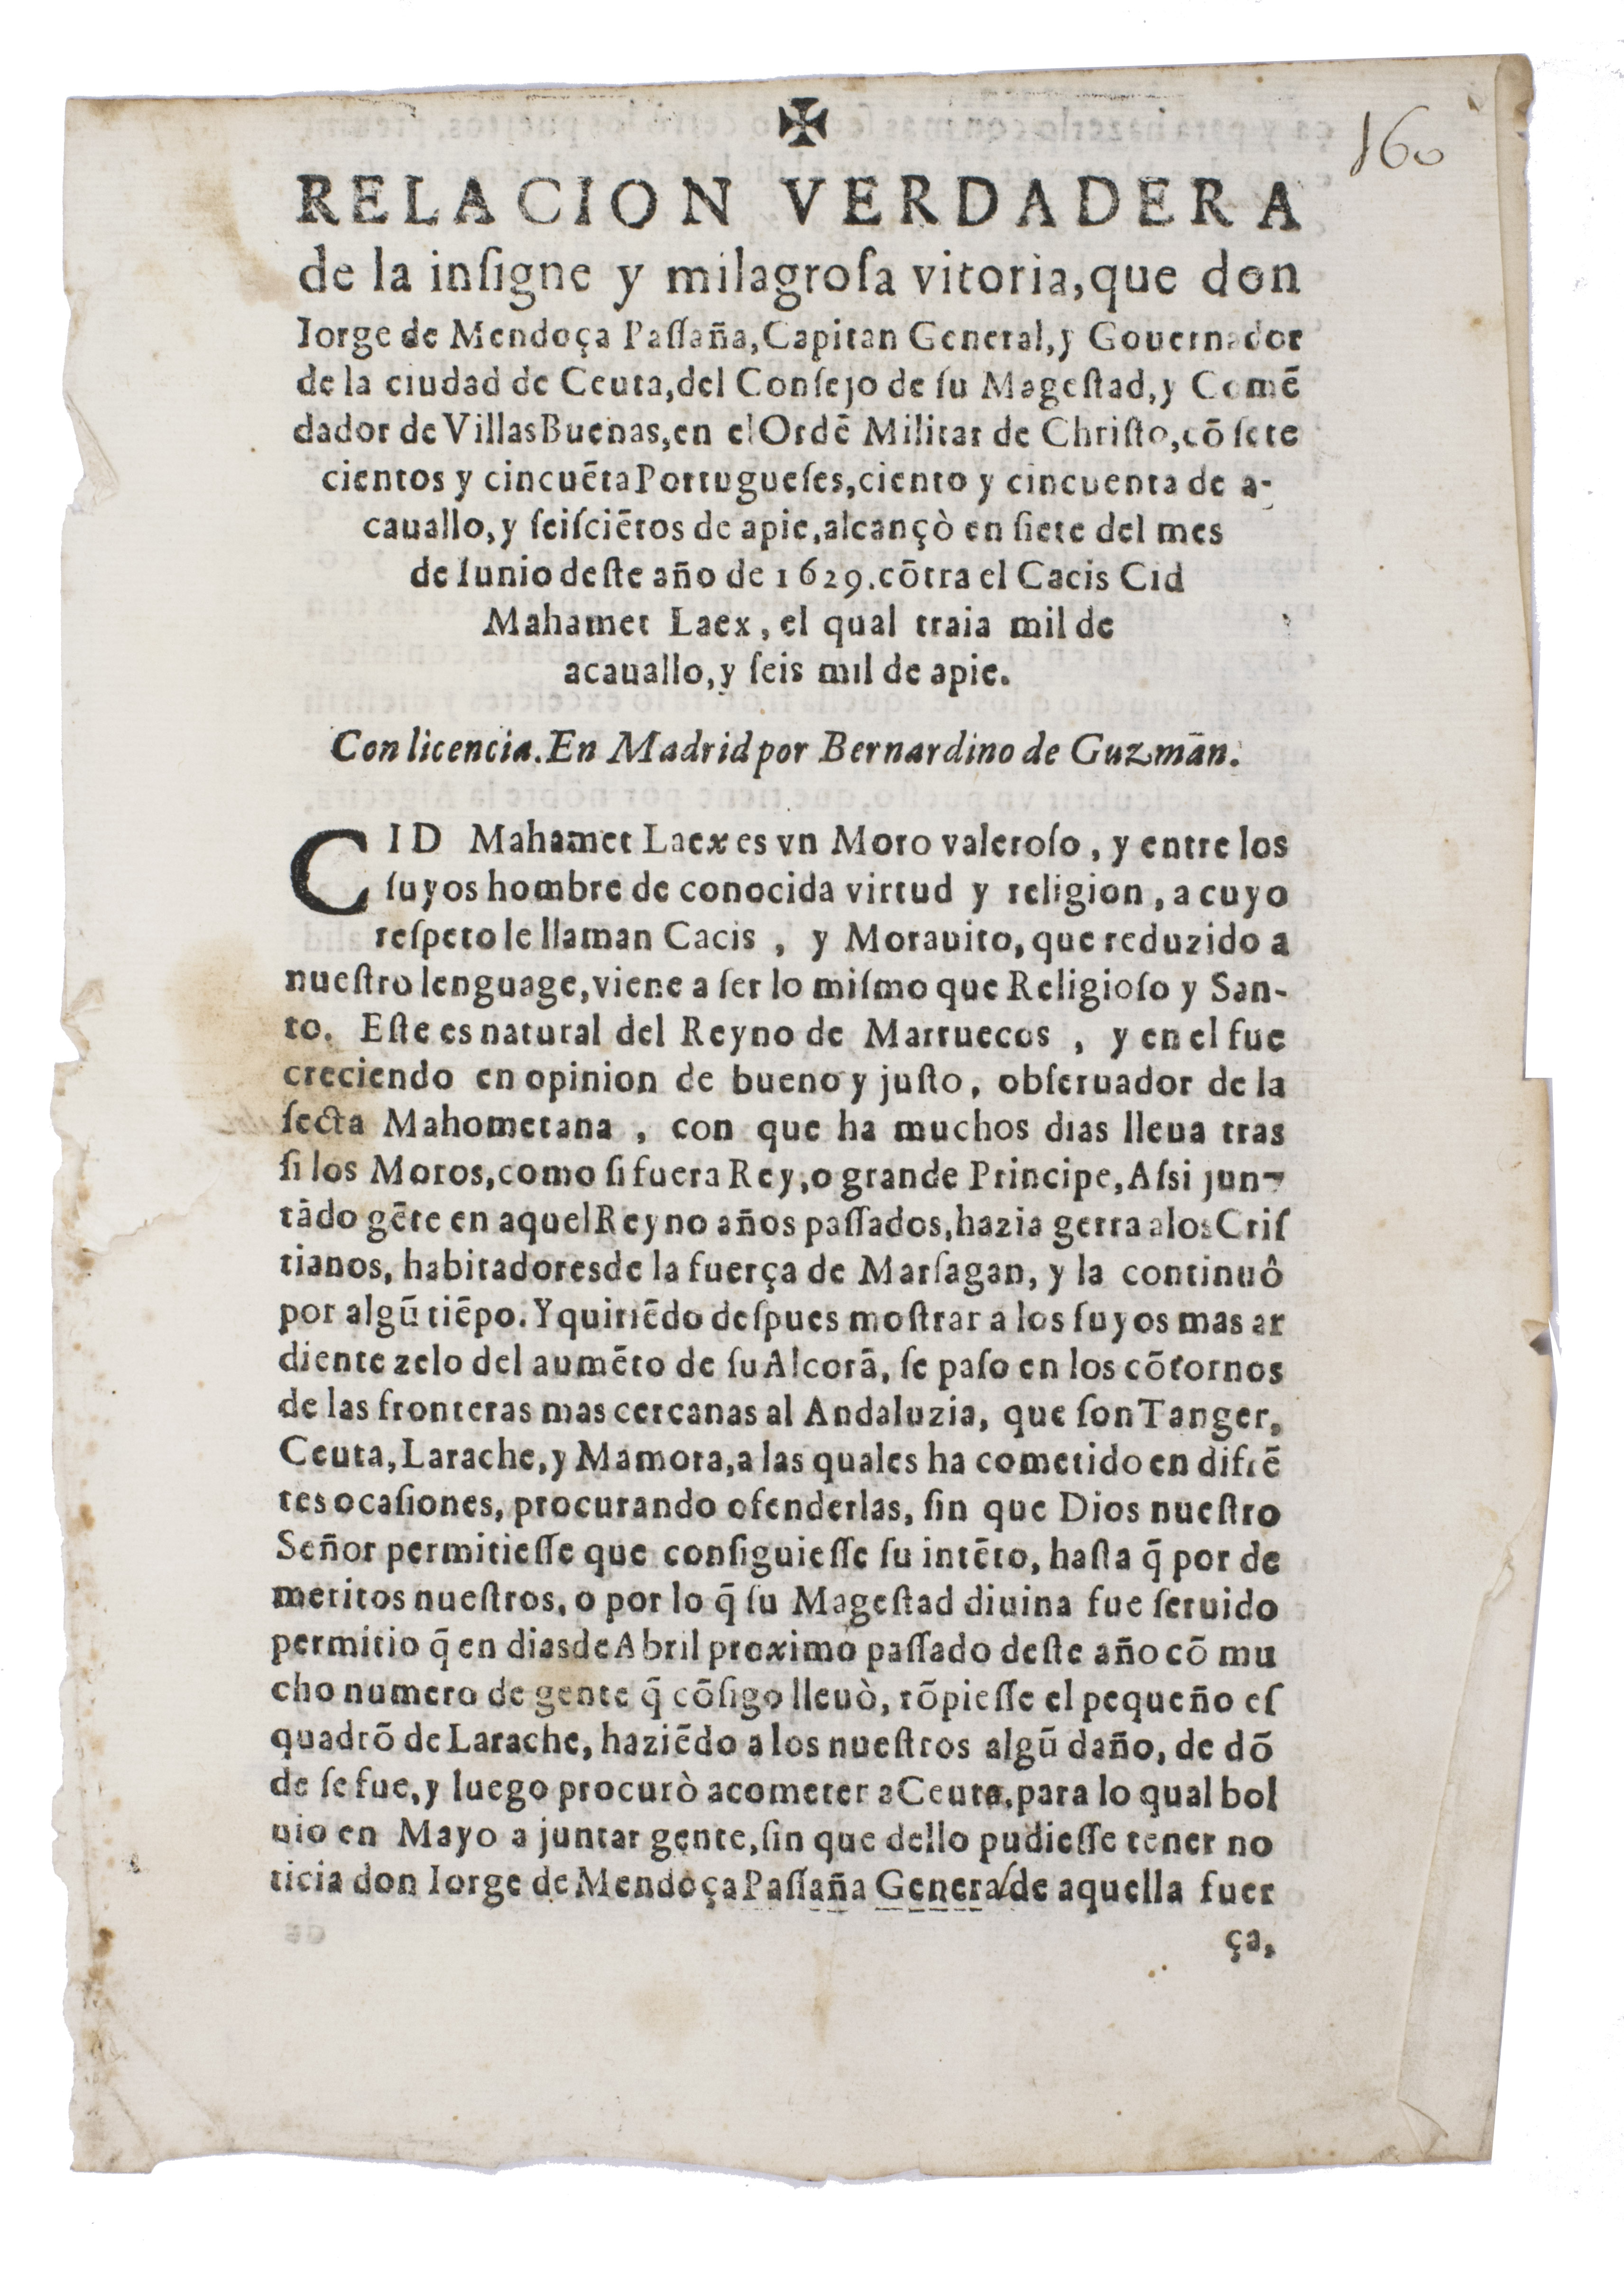 160
RELACION VERDADERA
de la inſigne y milagroſa vitoria, que don
Iorge de Mendoça Paſſaña, Capitan General, y Gouernador
de la ciudad de Ceuta, del Conſejo de ſu Mageſtad, y Comē
dador de Villas Buenas, en el Ordē Militar de Chriſto, cō ſete
cientos y cincuēta Portugueſes, ciento y cincuenta de a-
cauallo, y ſeiſciētos de apie, alcançò en ſiete del mes
de Iunio deſte año de 1629. cōtra el Cacis Cid
Mahamet Laex, el qual traia mil de
acauallo, y ſeis mil de apie.
Con licencia. En Madrid por Bernardino de Guzmãn.
CID Mahamet Laex es vn Moro valeroſo, y entre los
ſuyos hombre de conocida virtud y religion, a cuyo
reſpeto le llaman Cacis, y Morauito, que reduzido a
nueſtro lenguage, viene a ſer lo miſmo que Religioſo y San-
to. Eſte es natural del Reyno de Marruecos, y en el fue
creciendo en opinion de bueno y juſto, obſeruador de la
ſecta Mahometana, con que ha muchos dias lleua tras
ſi los Moros, como ſi fuera Rey, o grande Principe, Aſsi jun-
tādo gēte en aquel Reyno años paſſados, hazia gerra a los Criſ
tianos, habitadores de la fuerça de Marſagan, y la continuô
por algū tiēpo. Y quiriēdo deſpues moſtrar a los ſuyos mas ar
diente zelo del aumēto de ſu Alcorā, ſe paſo en los cōtornos
de las fronteras mas cercanas al Andaluzia, que ſon Tanger,
Ceuta, Larache, y Mamora, a las quales ha cometido en difrē
tes ocaſiones, procurando ofenderlas, ſin que Dios nueſtro
Señor permitieſſe que conſiguieſſe ſu intēto, haſta q̄ por de
meritos nueſtros, o por lo q̄ ſu Mageſtad diuina fue ſeruido
permitio q̄ en dias de Abril proximo paſſado deſte año cō mu
cho numero de gente q̄ cōſigo lleuò, rōpieſſe el pequeño eſ
quadrō de Larache, haziēdo a los nueſtros algū daño, de dō
de ſe fue, y luego procurò acometer a Ceuta, para lo qual bol
uio en Mayo a juntar gente, ſin que dello pudieſſe tener no
ticia don Iorge de Mendoça Paſſaña General de aquella fuer
ça,